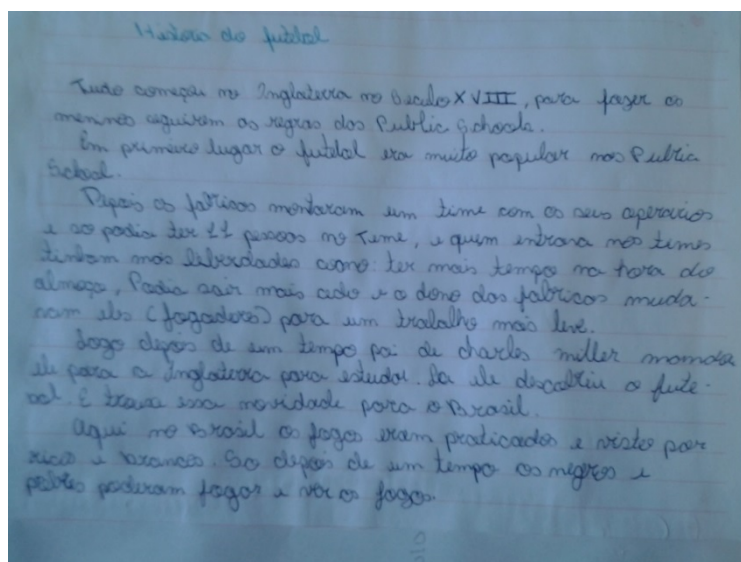 Historia do futebol
Tudo começou na Inglaterra no Seculo XVIII, para fazer os
meninos seguirem as regras dos Public Schools.
Em primeiro lugar o futebol era muito popular nas Public
School.
Depois as fabricas montaram um time com os seus operarios
e so podia ter 11 pessoas no Time, e quem entrava nos times
tinham mais liberdades como: ter mais tempo na hora do
almoço, Podia sair mais cedo e o dono das fabricas muda-
vam eles (jogadores) para um trabalho mais leve.
Logo depois de um tempo pai de charles miller mandou
ele para a Inglaterra para estudar. La ele descobriu o fute-
bol. E trouxe essa novidade para o Brasil.
Aqui no Brasil os jogos eram praticados e visto por
ricos e brancos. So depois de um tempo os negros e
pobres poderam jogar e ver os jogos.